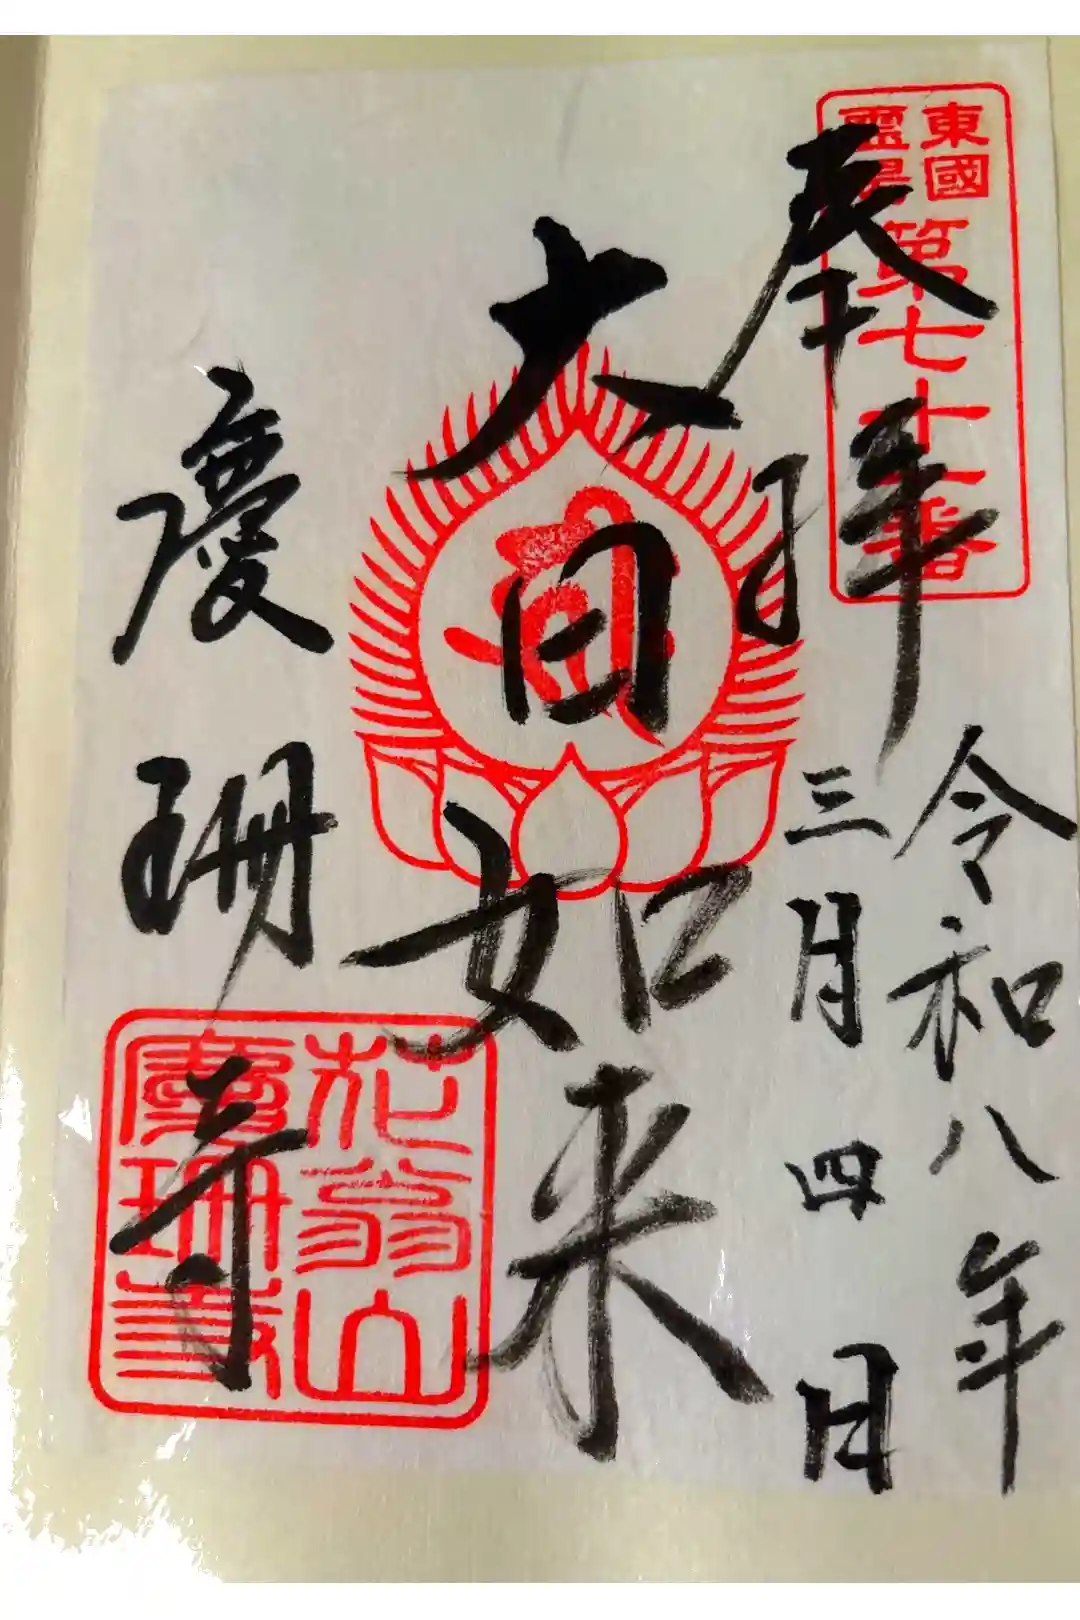 東國
靈場
第七十一番
奉拝
令和八年
三月四日
大日如来
慶珊寺
花翁山
慶珊寺